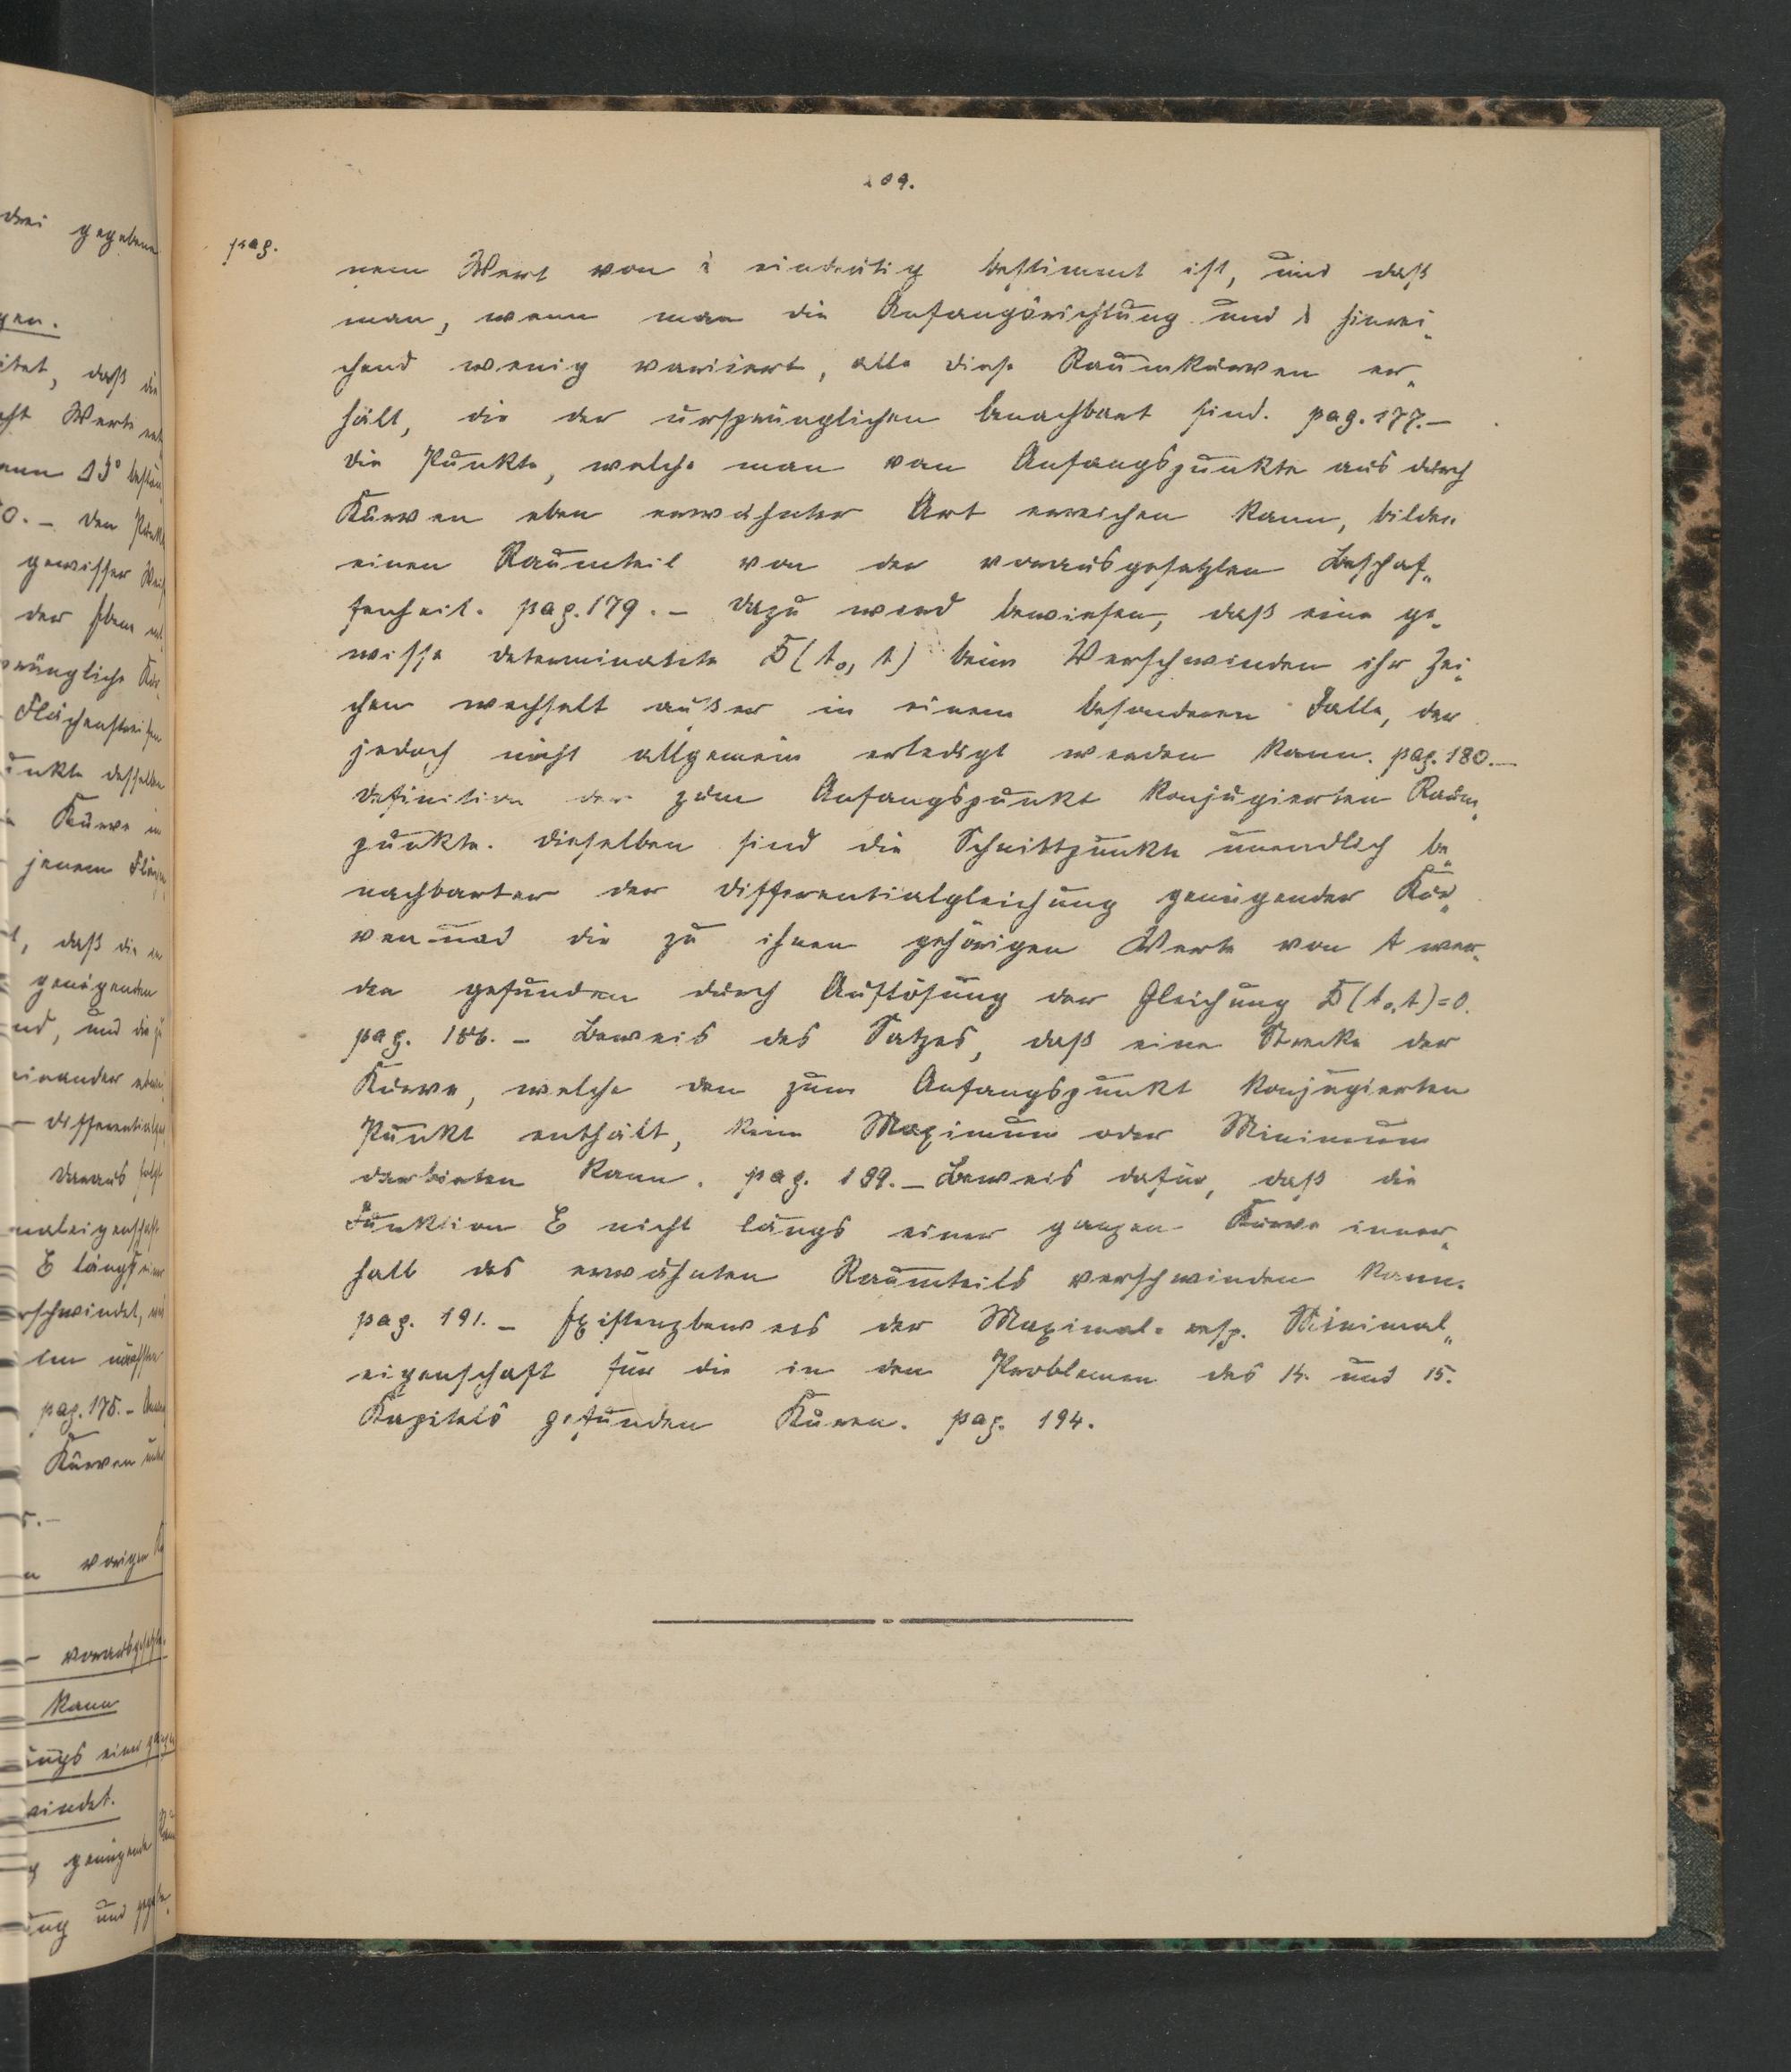 209.
pag.
nem Wert von λ eindeutig bestimmt ist, und daß
man, wenn man die Anfangsrichtung und λ hinrei„
chend wenig variiert, alle diese Raumkurven er„
hält, die der ursprünglichen benachbart sind. pag. 177.—
Die Punkte, welche man vom Anfangspunkte aus durch
Kurven eben erwähnter Art erreichen kann, bilden
einen Raumteil von der vorausgesetzten Beschaf„
fenheit. pag. 179. – Dazu wird bewiesen, daß eine ge„
wisse Determinante D(t₀, t) beim Verschwinden ihr Zei„
chen wechselt außer in einem besonderen Falle, der
jedoch nicht allgemein erledigt werden kann. pag. 180.—
Definition der zum Anfangspunkt konjugierten Raum„
punkte. Dieselben sind die Schnittpunkte unendlich be„
nachbarter der Differentialgleichung genügender Kur„
ven und die zu ihnen gehörigen Werte von t wer„
den gefunden durch Auflösung der Gleichung D(t₀,t)=0.
pag. 186. – Beweis des Satzes, daß eine Strecke der
Kurve, welche den zum Anfangspunkt konjugierten
Punkt enthält, kein Maximum oder Minimum
darbieten kann. pag. 189. – Beweis dafür, daß die
Funktion E nicht längs einer ganzen Kurve inner„
halb des erwähnten Raumteils verschwinden kann.
pag. 191. – Existenzbeweis der Maximal- resp. Minimal„
eigenschaft für die in den Problemen des 14. und 15.
Kapitels gefunden Kuren. pag. 194.
drei gegebene
daß die
Werte
gewisser
der
Flächenstreifen
Kurve in
jenem
daß die
genügenden
und die
einander
Differential
Daraus folgt
E längs einer
pag. 175. –
Kurven
vorigen
kann
genügende
und